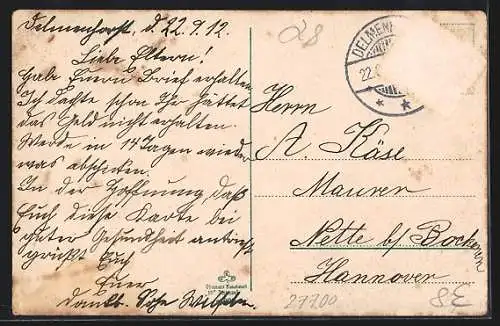 Delmenhorst, d. 22.9.12.
Liebe Eltern!
Habe Euern Brief erhalten
Ich dachte schon Ihr hättet
das Geld nicht erhalten.
Werde in 14 Tagen wieder
was abschicken.
In der Hoffnung, daß
Euch diese Karte bei
guter Gesundheit antrifft
grüßt Euch
Euer
dankb. Sohn Wilhelm.
28
DELMEN
22.
Herrn
A. Käse
Maurer
Nette b/ Bockenem
Hannover
27700
8E